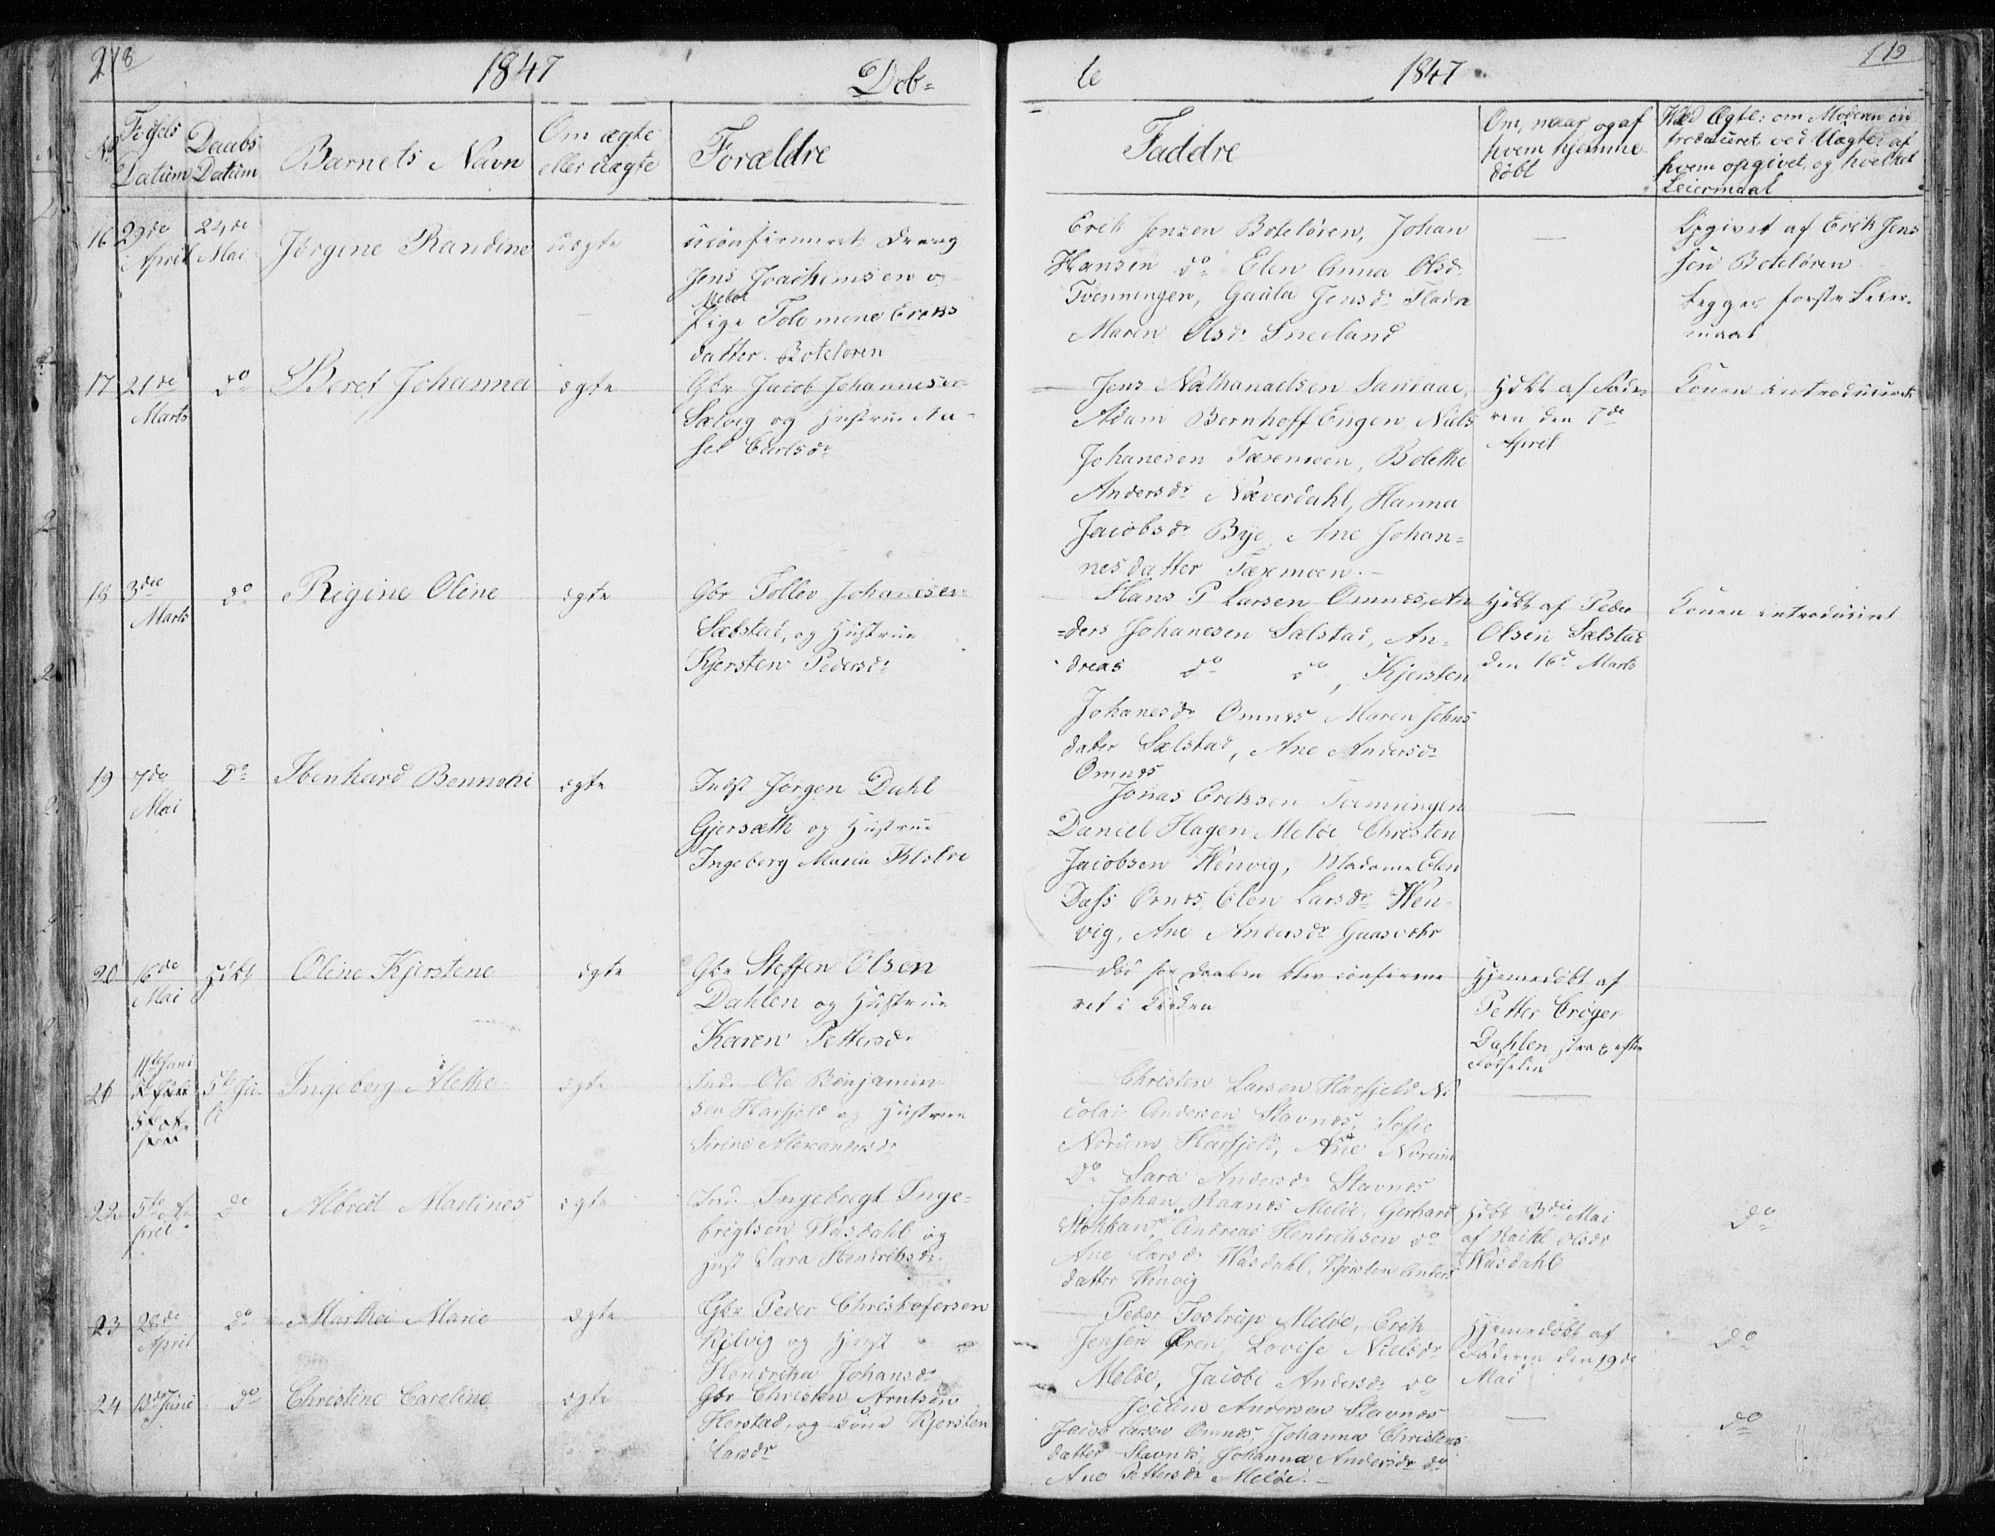 218
1847
Døb-
te
1847
119
No
Fødsels
Datum
Daabs
Datum
Barnets Navn
Om ægte
eller uægte
Forældre
Faddre
Om, naar og af
hvem hjemme
døbt
Ved Ægte: om Moderen in
troduceret ved Uægte: af
hvem opgivet, og hvilket
Leiermaal
16
29de
April
24de
Mai
Jørgine Randine
uægte
uconfirmeret Dreng
Jens Joachimsen og
Pige
datter Boteløren
Erik Jensen Boteløren, Johan
Hansen do Elen Anna Olsd.
Tvenningen, Gaula Jensd.
Maren Olsdr
Opgivet af Erik Jens
sen Boteløren
begges første Leier-
maal
17
21de
Marts
do
Beret Johanna
ægte
Gbr Jacob Johannesen
Selvig og Hustrue
Carlsdr
Jens Nathanaelsen
Adam Bernhoff Engen Niels
Johanesen Færemoen, Bolethe
Andersdr Næverdahl, Hanna
Jacobsdr Bye, Ane Johan-
nesdatter Færemoen.
Hdbt af Fade-
ren den 7de
April
Konen introduceret
18
3die
Marts
do
Rigine Oline
ægte
Gbr Tollev Johanesen
Selstad, og Hustrue
Kjersten Pedersdr
Hans P Larsen Omnes, An
=ders Johanesen Selstad, An-
dreas do do, Kjersten
Johanesdr Omnes Maren Johns
datter Selstad, Ane Andersdr
Omnes
Hdbt af Peder
Olsen Selstad
den 16d Marts
Konen introduceret
19
7de
Mai
Do
Ibenhard Bennoni
ægte
Indst Jørgen Dahl
Gjersæth og Hustrue
Ingeborg Maria
Jonas Eriksen Tvenningen
Daniel Hagen Meløe Christen
Jacobsen Wenvig, Madame Elen
Dass Ørnes, Elen Larsdr Wen-
vig, Ane Andersdr Gaasvær
20
16de
Mai
Hdbt
Oline Kjerstene
ægte
Gbr Steffen Olsen
Dahlen og Hustrue
Karen Pettersdr
død før Daaben blev confirme
ret i Kirken
Hjemmedøbt af
Petter Crøger
Dahlen strax efter
Fødselen
21
5te Ju-
li
Ingeberg Alethe
ægte
Ind. Ole Benjamin
sen Harfjeld og Hustrue
Sirine Alexandersdr
Christen Larsen Harfjeld Ni
colai Andersen Stavnes, Sofie
Norum Harfjeld, Ane Norum
Do Sara Andersdr Stavnes
22
5te A-
pril
Do
Albreit Martines
ægte
Ind. Ingebregt Inge-
bregtsen Wasdahl og
Hust Sara Henriksdr
Johan Raanes Meløe, Gerhard
Stokhan Andreas Henriksen do
Ane Larsdr Wasdahl, Kjersten Anders
datter Wenvig
Hdbt 3die Mai
af Olsdr
Wasdahl
Do
23
28de
April
do
Marthea Marie
ægte
Gbr Peder Christofersen
Kilvig og Hust
Hendrikea Johansdr
Peder Tostrup Meløe, Erik
Jensen Øren, Lovise Nielsdr
Meløe, Jacobe Andersdr do
Hjemmedøbt af
Faderen den 19de
Mai
Do
24
13de Juni
do
Christine Caroline
ægte
Gbr Christen Arntsøn
Herstad, og Kone Kjersten
Larsdr
Jochim Andersen Stavnes
Jacob Larsen Omnes, Johanna Christens
datter Stavnes, Johanna Andersdr do
Ane Pettersdr Meløe.
do